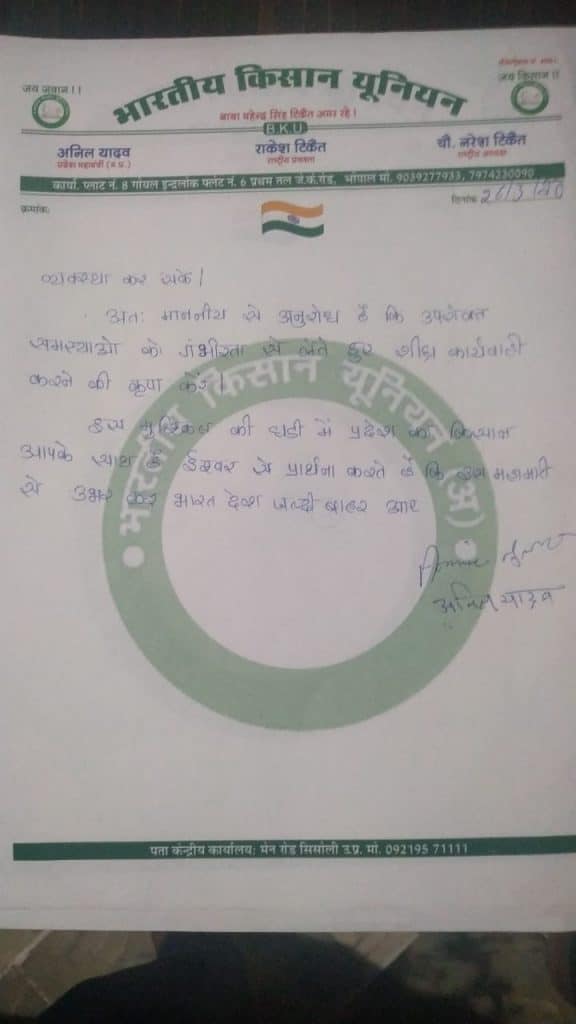 जय जवान।।
जय किसान ।।
भारतीय किसान यूनियन
बाबा महेन्द्र सिंह टिकैत अमर रहे।
B.K.U
अनिल यादव
प्रदेश महामंत्री (म.प्र.)
राकेश टिकैत
राष्ट्रीय प्रवक्ता
चौ. नरेश टिकैत
राष्ट्रीय अध्यक्ष
कार्या. प्लाट नं. 8 गोयल इन्द्रलोक फ्लेट नं. 6 प्रथम तल जे.के.रोड, भोपाल मो. 9039277933, 7974230090
क्रमांक:
दिनांक
व्यवस्था कर सके।
अतः माननीय से अनुरोध है कि उपरोक्त
समस्याओ को गंभीरता से लेते हुए शीघ्र कार्यवाही
करने की कृपा करें।
इस मुश्किल की घडी में प्रदेश का किसान
आपके साथ है ईश्वर से प्रार्थना करते है कि इस महामारी
से उभर कर भारत देश जल्दी बाहर आए
अनिल यादव
भारतीय किसान यूनियन (अ)
पता केन्द्रीय कार्यालय: मेन रोड सिसोली उ.प्र. मो. 092195 71111